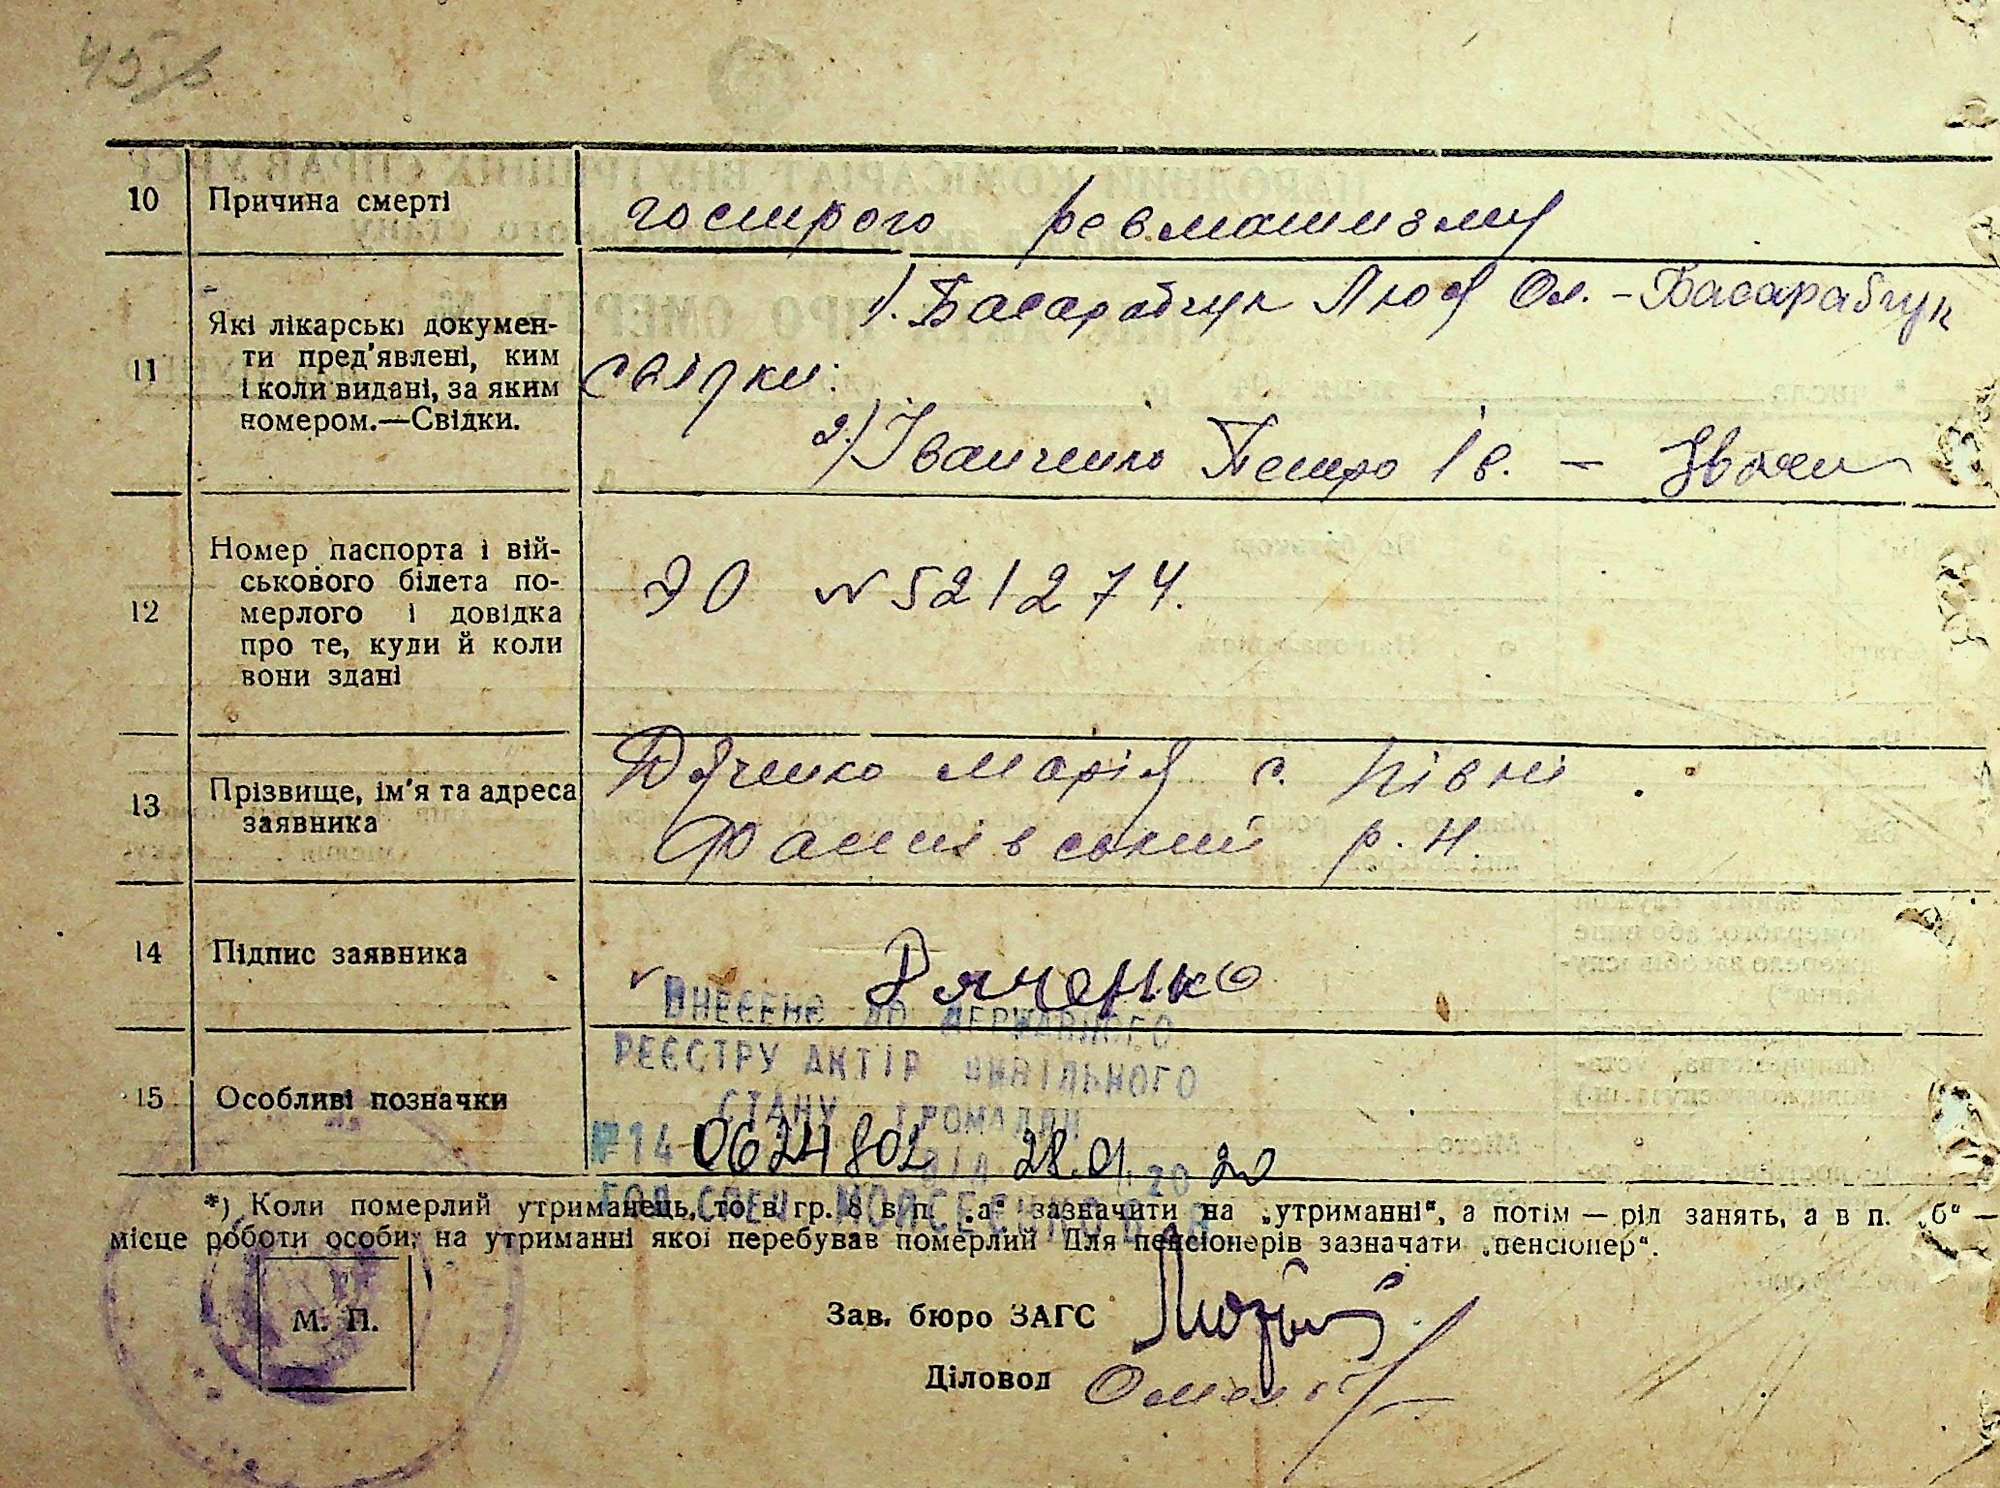 10 Причина смерті гострого ревматизму
11 Які лікарські докумен-
ти пред'явлені, ким
і коли видані, за яким
номером.—Свідки.
1). Басарабчук Люся Ол. - Басарабчук
свідки:
2) Іванченко Петро Ів. -
12 Номер паспорта і вій-
ськового білета по-
мерлого і довідка
про те, куди й коли
вони здані
ЭО № 521274.
13 Прізвище, ім'я та адреса
заявника
Дяченко Марія с. Півні
Фастівський р.н.
14 Підпис заявника Дяченко
ВНЕСЕНО ДО ДЕРЖАВНОГО
РЕЄСТРУ АКТІВ ЦИВІЛЬНОГО
15 Особливі позначки
СТАНУ ГРОМАДЯН
№14 0624802 ВІД 28.01 20 20
ГОЛ.СПЕЦ. МОЙСЕЄНКО В.В
*) Коли померлий утриманець, то в гр. 8 в п. „а“ зазначити на „утриманні“, а потім — рід занять, а в п. „б“ —
місце роботи особи, на утриманні якої перебував померлий Для пенсіонерів зазначати „пенсіонер“.
М. П.
Зав. бюро ЗАГС
Діловод